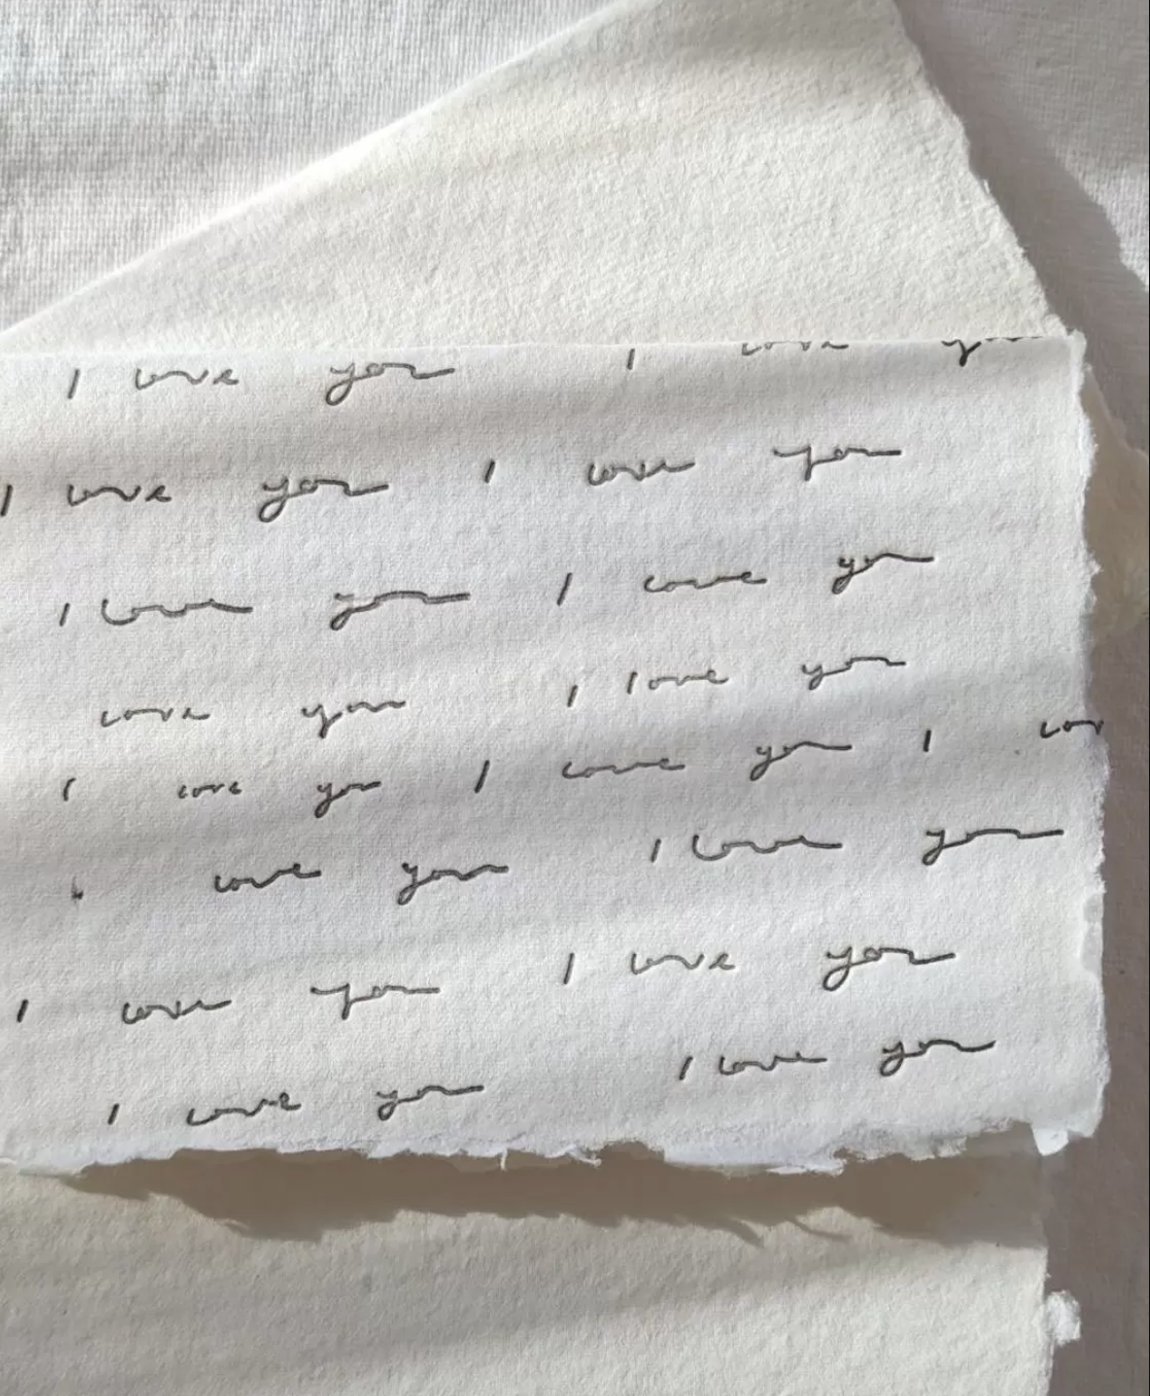 I love you I love you
I love you I love you
I love you I love you
love you I love you
I love you I love you I lov
love you I love you
I love you I love you
I love you I love you